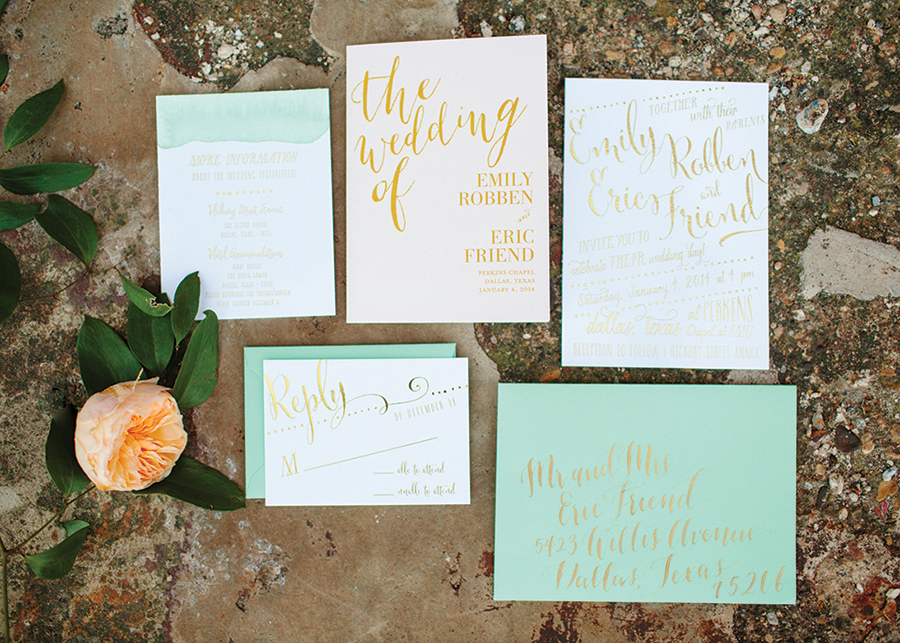 MORE INFORMATION
ABOUT THE WEDDING
the
wedding
of
EMILY
ROBBEN
AND
ERIC
FRIEND
PERKINS CHAPEL
DALLAS, TEXAS
JANUARY 4, 2014
TOGETHER with their
PARENTS
Emily
Robben
Eric
with
Friend
INVITE YOU TO
celebrate THEIR wedding day!
Saturday, January 4, 2014 at 4 pm
dallas, texas at PERKINS
Chapel at SMU
RECEPTION TO FOLLOW | HICKORY STREET ANNEX
Reply
BY DECEMBER
M
able to attend
unable to attend
Mr and Mrs
Eric Friend
5423 Willis Avenue
Dallas, Texas
75206